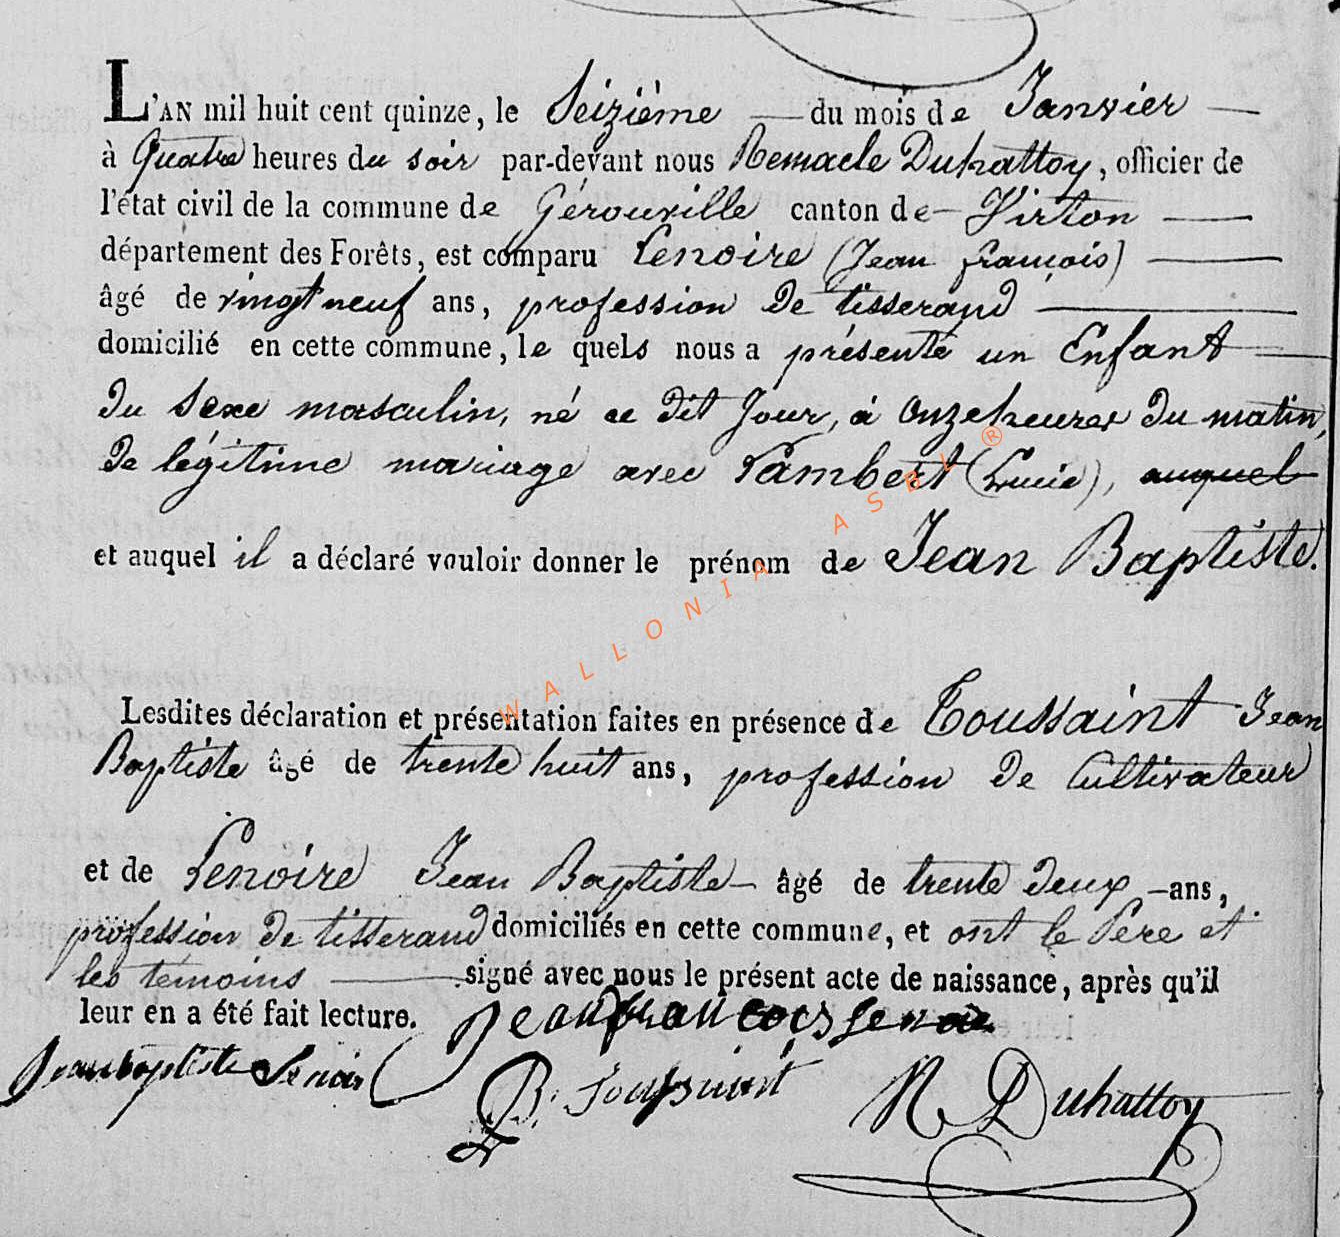 L'AN mil huit cent quinze, le Seizième du mois de Janvier
à Quatre heures du soir par-devant nous Remacle Duhattoy, officier de
l'état civil de la commune de Gérouville canton de Virton
département des Forêts, est comparu Lenoire (Jean françois)
âgé de vingt neuf ans, profession de tisserand
domicilié en cette commune, le quels nous a présenté un Enfant
du sexe masculin, né ce dit Jour, à onze heures du matin,
de légitime mariage avec Lambert (Lucie), auquel
et auquel il a déclaré vouloir donner le prénom de Jean Baptiste.
Lesdites déclaration et présentation faites en présence de Toussaint Jean
Baptiste âgé de trente huit ans, profession de Cultivateur
et de Lenoire Jean Baptiste âgé de trente deux ans,
profession de tisserand domiciliés en cette commune, et ont le Père et
les témoins signé avec nous le présent acte de naissance, après qu'il
leur en a été fait lecture.
Jean francois Lenoir
Jean baptiste Lenoir
B. Toussaint
N Duhattoy
WALLONIA ASBL ®